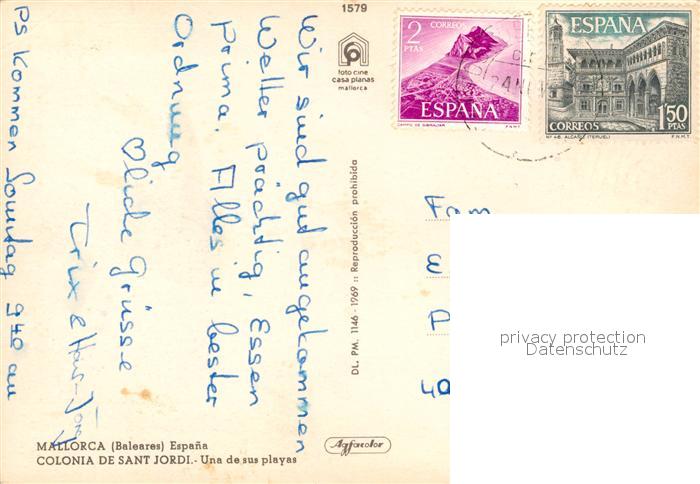 1579
foto cine
casa planas
mallorca
2
PTAS
CORREOS
ESPAÑA
CAMPO DE GIBRALTAR
F.N.M.T.
ESPAÑA
CORREOS
1'50
PTAS
Nº 46. ALCAÑIZ (TERUEL)
F.N.M.T.
Wir sind gut angekommen
Wetter prächtig, Essen
prima. Alles in bester
Ordnung
Grüsse
Trix & Hans-Jörg
PS Kommen Sonntag 940 an
DL. PM. 1146 - 1969 :: Reproducción prohibida
Fam
E
P
40
privacy protection
Datenschutz
MALLORCA (Baleares) España
COLONIA DE SANT JORDI.- Una de sus playas
Agfacolor